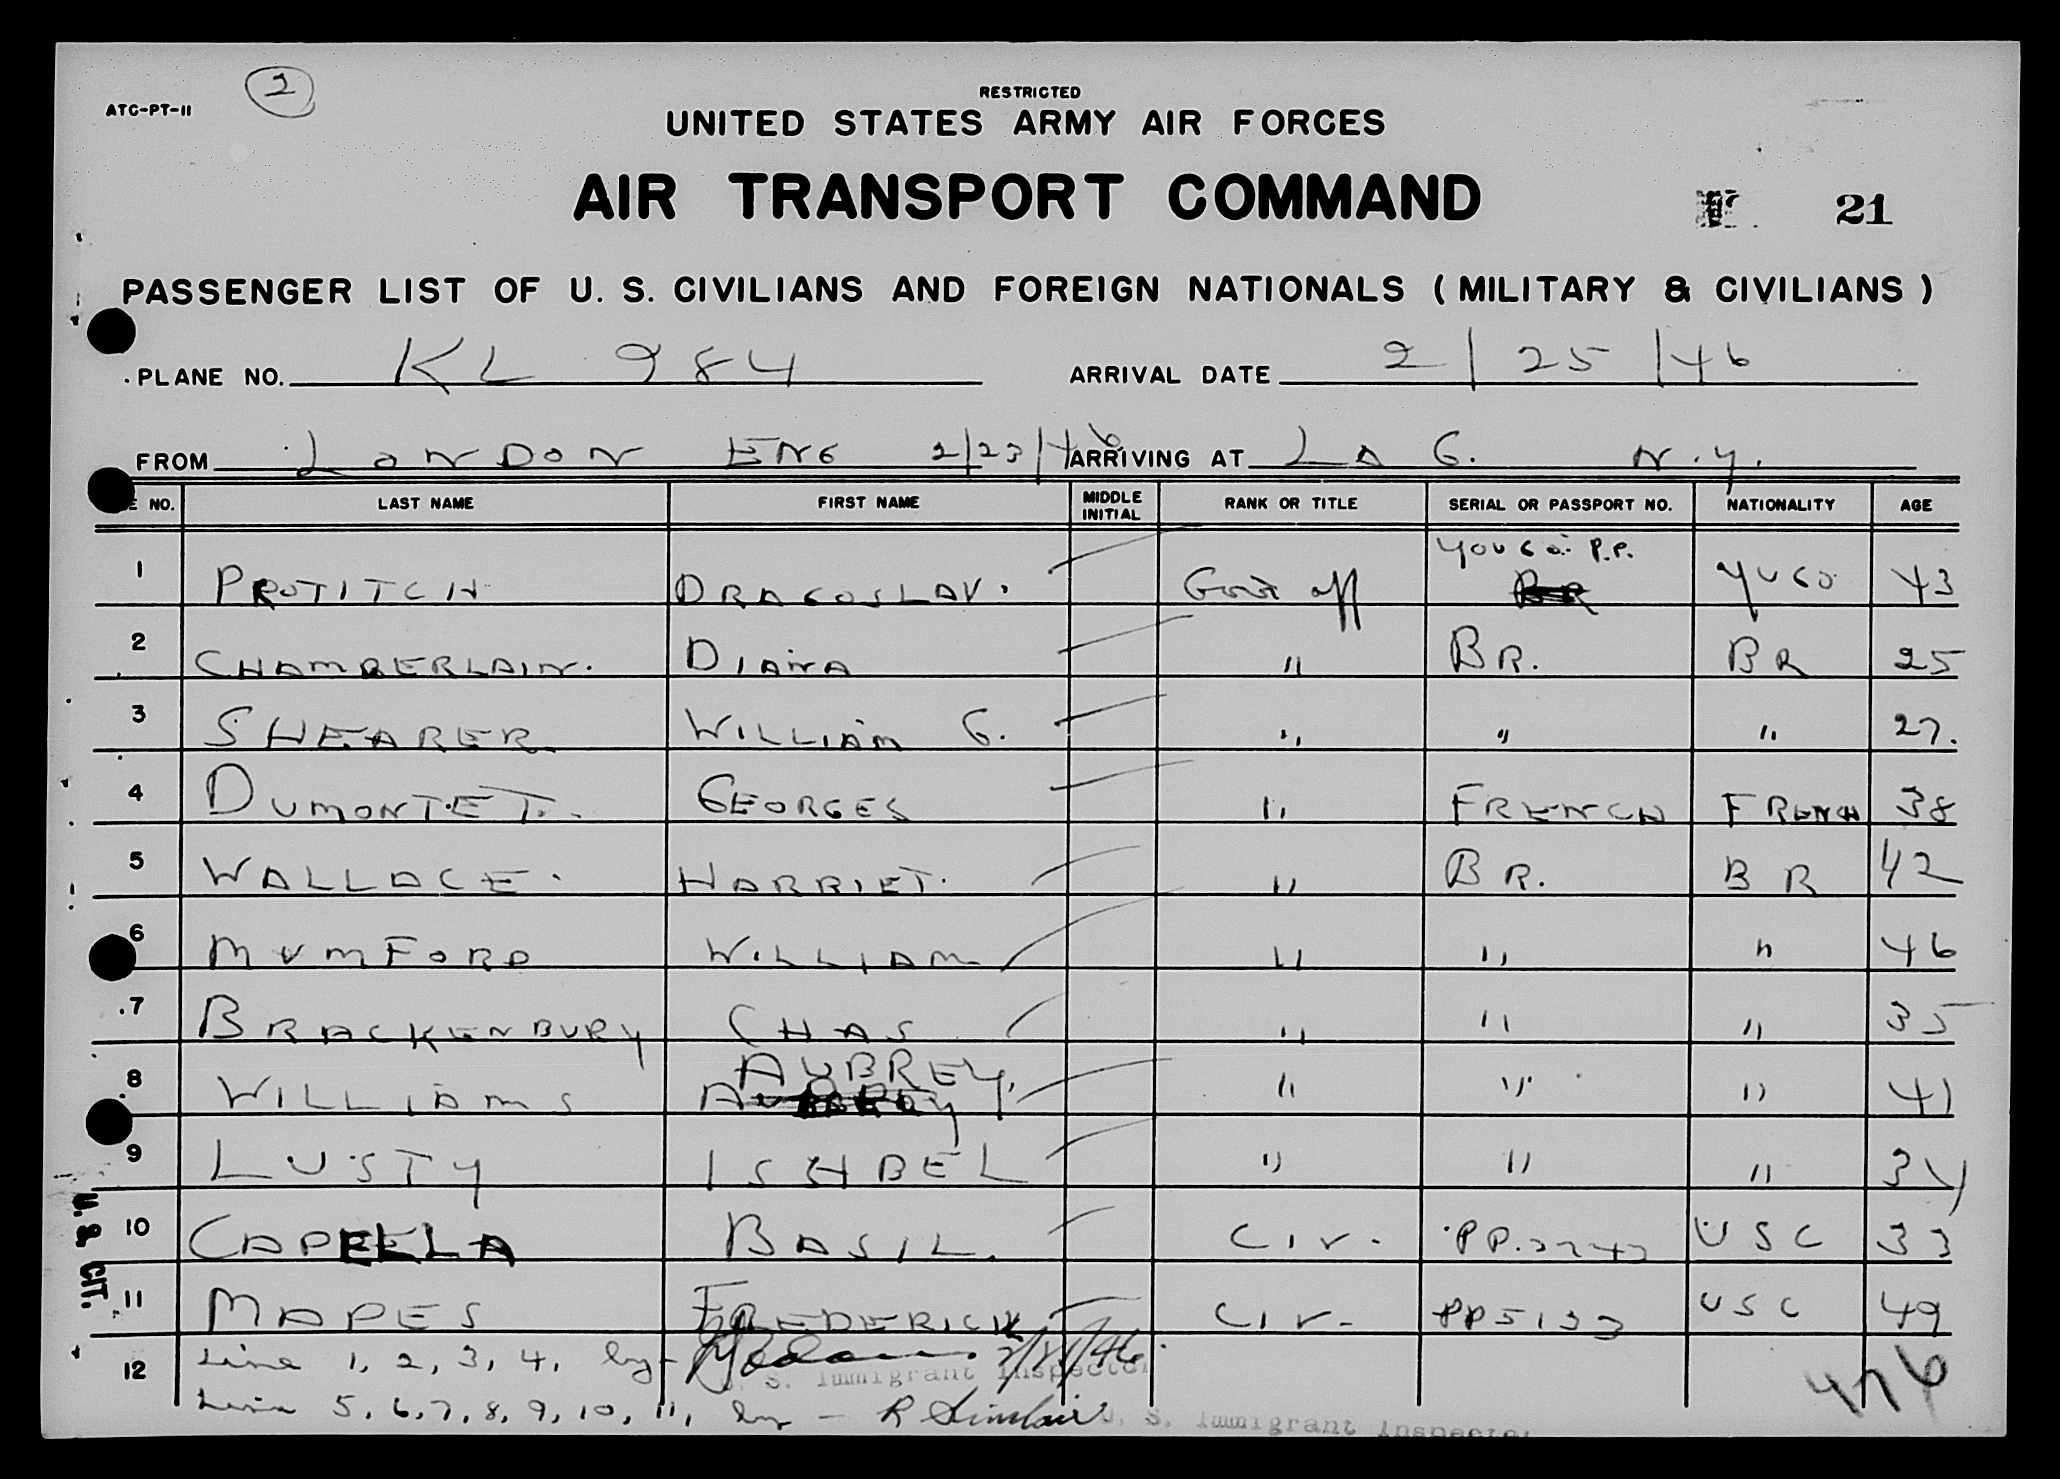 ATC-PT-11
2
RESTRICTED
UNITED STATES ARMY AIR FORCES
AIR TRANSPORT COMMAND
21
PASSENGER LIST OF U. S. CIVILIANS AND FOREIGN NATIONALS ( MILITARY & CIVILIANS )
PLANE NO. KL 984 ARRIVAL DATE 2/25/46
FROM LONDON ENG 2/23/46 ARRIVING AT LA G. N.Y.
E NO. LAST NAME FIRST NAME MIDDLE INITIAL RANK OR TITLE SERIAL OR PASSPORT NO. NATIONALITY AGE
1 PROTITCH DRAGOSLAV. Govt off Yougo. P.P. BR YUGO 43
2 CHAMBERLAIN. DIANA " BR. BR 25
3 SHEARER WILLIAM G. " " " 27.
4 DUMONTET. GEORGES " FRENCH FRENCH 38
5 WALLACE. HARRIET. " BR. BR 42
6 MUMFORD WILLIAM " " " 46
7 BRACKENBURY CHAS " " " 35
AUBREY,
8 WILLIAMS " " " 41
9 LUSTY ISHBEL " " " 34
10 CAPELLA BASIL. CIV. PP. USC 33
11 MAPES FREDERICK CIV. PP5133 USC 49
U. S. CIT.
12 Line 1, 2, 3, 4, by
U. S. Immigrant Inspector
Line 5, 6, 7, 8, 9, 10, 11, by - R Sinclair U. S. Immigrant Inspector
476